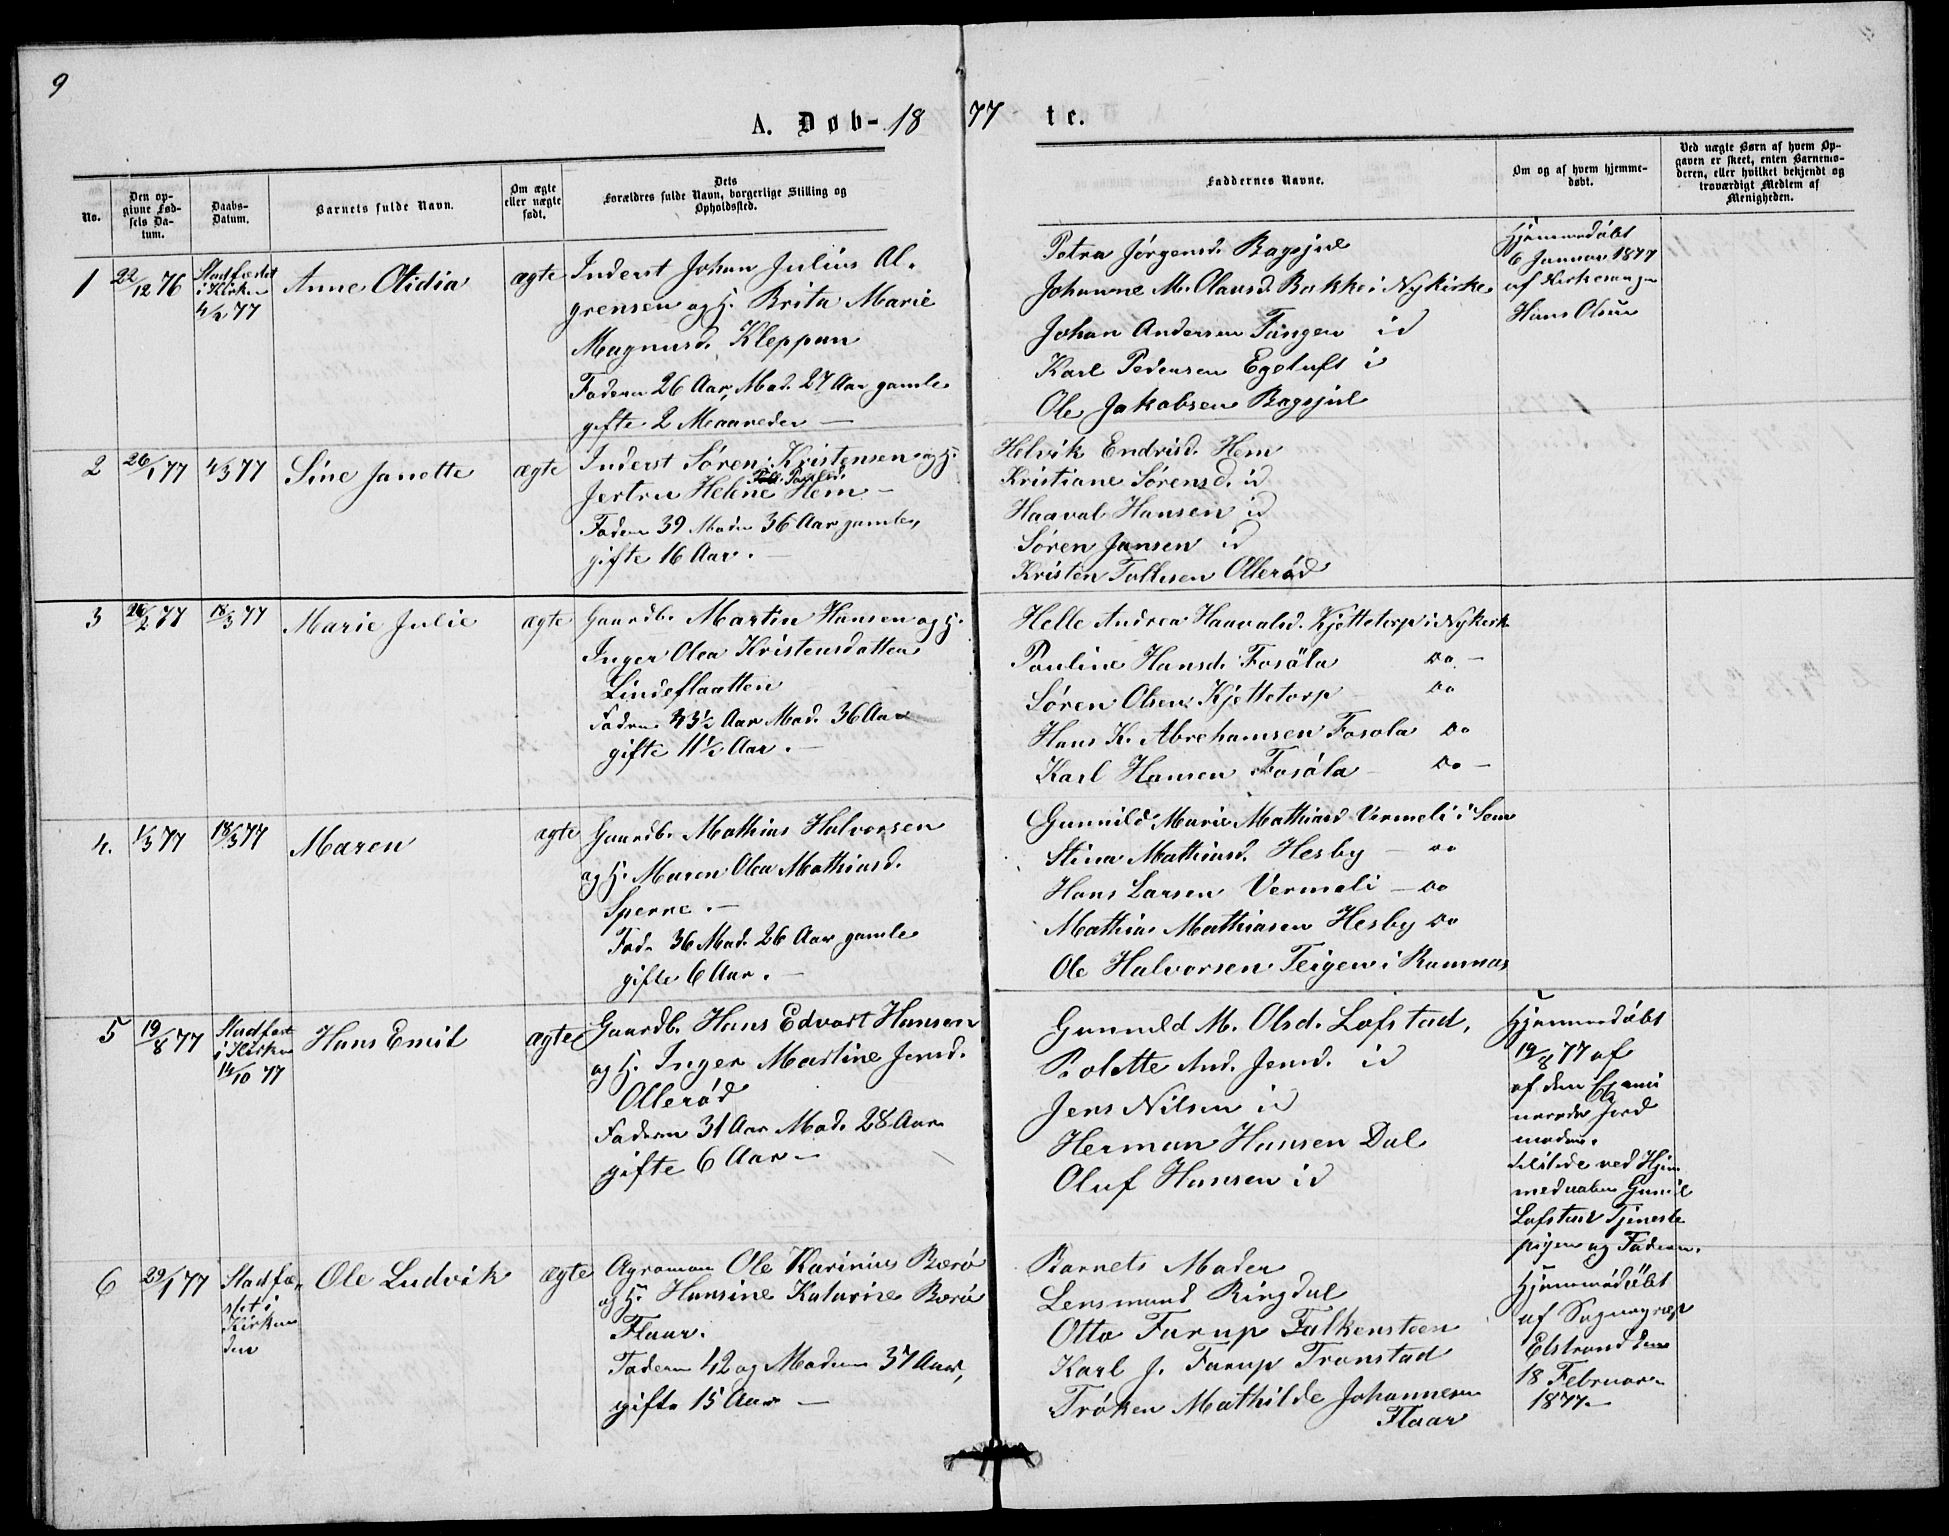 9
A. Døb- 18 77 te.
No.
Den op-
givne Fød-
sels Da-
tum.
Daabs-
Datum.
Barnets fulde Navn.
Om ægte
eller nægte
født.
Dets
Forældres fulde Navn, borgerlige Stilling og
Opholdssted.
Faddernes Navne.
Om og af hvem hjemme-
døbt.
Ved uægte Børn af hvem Op-
gaven er skeet, enten Barnemo-
deren, eller hvilket bekjendt og
troværdigt Medlem af
Menigheden.
1
22/12 76
Stadfæstet
i Kirken
4/2 77
Anne Olidia
ægte
Inderst Johan Julius Al-
grensen og H. Brita Marie
Magnusd. Kleppan
Faderen 26 Aar, Mod. 27 Aar gamle
gifte 2 Maaneder —
Petra Jørgensd. Bagsjul
Johanne M. Olausd. Bakke i Nykirke
Johan Andersen Tangen id
Karl Pedersen Egeluft i
Ole Jakobsen Bagsjul
Hjemmedøbt
6 Januar 1877
af Kirkesanger
Hans Olsen
2
26/1 77
4/3 77
Sine Janette
ægte
Inderst Søren Kristensen og H.
Jertru Helene Hem —
Fadren 39 Modr 36 Aar gamle,
gifte 16 Aar. —
Helvik Endrisd. Hem
Kristiane Sørensd. id
Haaval Hansen id
Søren Jansen id
Kristen Tollesen Ollerød
3
18/3 77
Marie Julie
ægte
Gaardb. Martin Hansen og H.
Inger Olea Kristensdatter
Lindeflaatten
Fadren 43½ Aar Mod. 36 Aar
gifte 11½ Aar. —
Helle Andrea Haavalsd. Kjettetorp i Nykirk
Pauline Hansd. Fosåla Do. —
Søren Olsen Kjettetorp — Do
Hans K. Abrehamsen Fosola Do
Karl Hansen Fosåla — Do —
4.
1/3 77
18/3 77
Maren
ægte
Gaardb. Mathias Halvorsen
og H. Maren Olea Mathiasd.
Sperre. —
Fad. 36 Mod. 26 Aar gamle
gifte 6 Aar. —
Gunnild Marie Mathiasd Vermeli i Sem
Stina Mathiasd. Hesby — Do
Hans Larsen Vermeli — Do
Mathias Mathiasen Hesby Do
Ole Halvorsen Teigen i Ramnas
5
19/8 77
Stadfest
i Kirken
14/10 77
Hans Emil
ægte
Gaardb. Hans Edvart Hansen
og H. Inger Martine Jensd.
Ollerød
Faderen 31 Aar Mod. 28 Aar
gifte 6 Aar —
Gunnild M. Olsd. Lofstad,
Rolette And. Jensd. id
Jens Nilsen id
Herman Hansen Dal
Oluf Hansen id
Hjemmedøbt
19/8 77 af
af den Exami
nerede Jord
moder.
tilstede ved Hjem
medaaben Gunil
Lofstad Tjeneste
pigen og Faderen.
6
29/1 77
Stadfæ-
stet i
Kirken
den
Ole Ludvik
ægte
Agronom Ole Karinius Børø
og H. Hansine Katarine Børø
Flaar.
Faderen 42 og Moderen 37 Aar,
gifte 15 Aar —
Barnets Moder
Lensmand Ringdal
Otto Farup Falkensteen
Karl J. Farup Tronstad
Frøken Mathilde Johannesen
Flaar
Hjemmedøbt
af Sognepræst
Elstrand den
18 Februar
1877. —